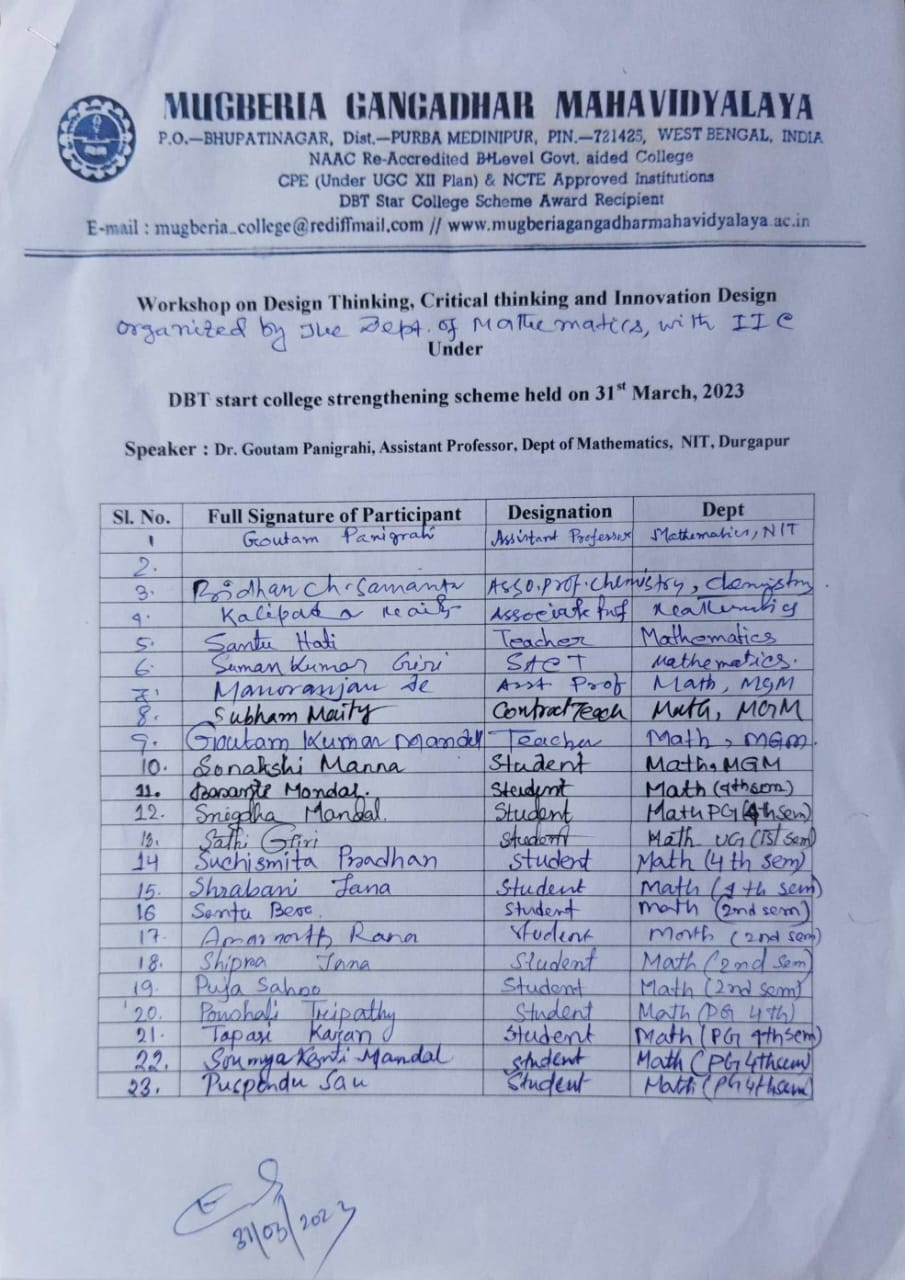 MUGBERIA GANGADHAR MAHAVIDYALAYA
P.O.—BHUPATINAGAR, Dist.—PURBA MEDINIPUR, PIN.—721425, WEST BENGAL, INDIA
NAAC Re-Accredited B+Level Govt. aided College
CPE (Under UGC XII Plan) & NCTE Approved Institutions
DBT Star College Scheme Award Recipient
E-mail : mugberia_college@rediffmail.com // www.mugberiagangadharmahavidyalaya.ac.in
Workshop on Design Thinking, Critical thinking and Innovation Design
Organized by The Dept. of Mathematics, with IIC
Under
DBT start college strengthening scheme held on 31st March, 2023
Speaker : Dr. Goutam Panigrahi, Assistant Professor, Dept of Mathematics, NIT, Durgapur
Sl. No. Full Signature of Participant Designation Dept
1 Goutam Panigrahi Assistant Professor Mathematics, NIT
2.
3. Bidhan Ch. Samanta Asso. Prof. Chemistry, Chemistry
4. Kalipada Maity Associate Prof Mathematics
5. Santu Hati Teacher Mathematics
6. Suman Kumar Giri SACT Mathematics.
7. Manoranjan De Asst Prof Math, MGM
8. Subham Maity Contract Teach Math, MGM
9. Goutam Kumar Mandal Teacher Math, MGM.
10. Sonakshi Manna Student Math, MGM
11. Basanti Mondal. Student Math (4th sem)
12. Snigdha Mandal. Student Math PG (4th sem)
13. Sathi Giri Student Math UG (1st sem)
14 Suchismita Pradhan Student Math (4th sem)
15. Shrabani Jana Student Math (4th sem)
16 Santu Student Math (2nd sem)
17. Amarnath Rana Student Math (2nd sem)
18. Shipra Jana Student Math (2nd sem)
19. Puja Sahoo Student Math (2nd sem)
20. Poushali Tripathy Student Math (PG 4th)
21. Tapasi Karan Student Math (PG 4th sem)
22. Soumya Kanti Mandal Student Math (PG 4th sem)
23. Puspendu Sau Student Math (PG 4th sem)
31/03/2023